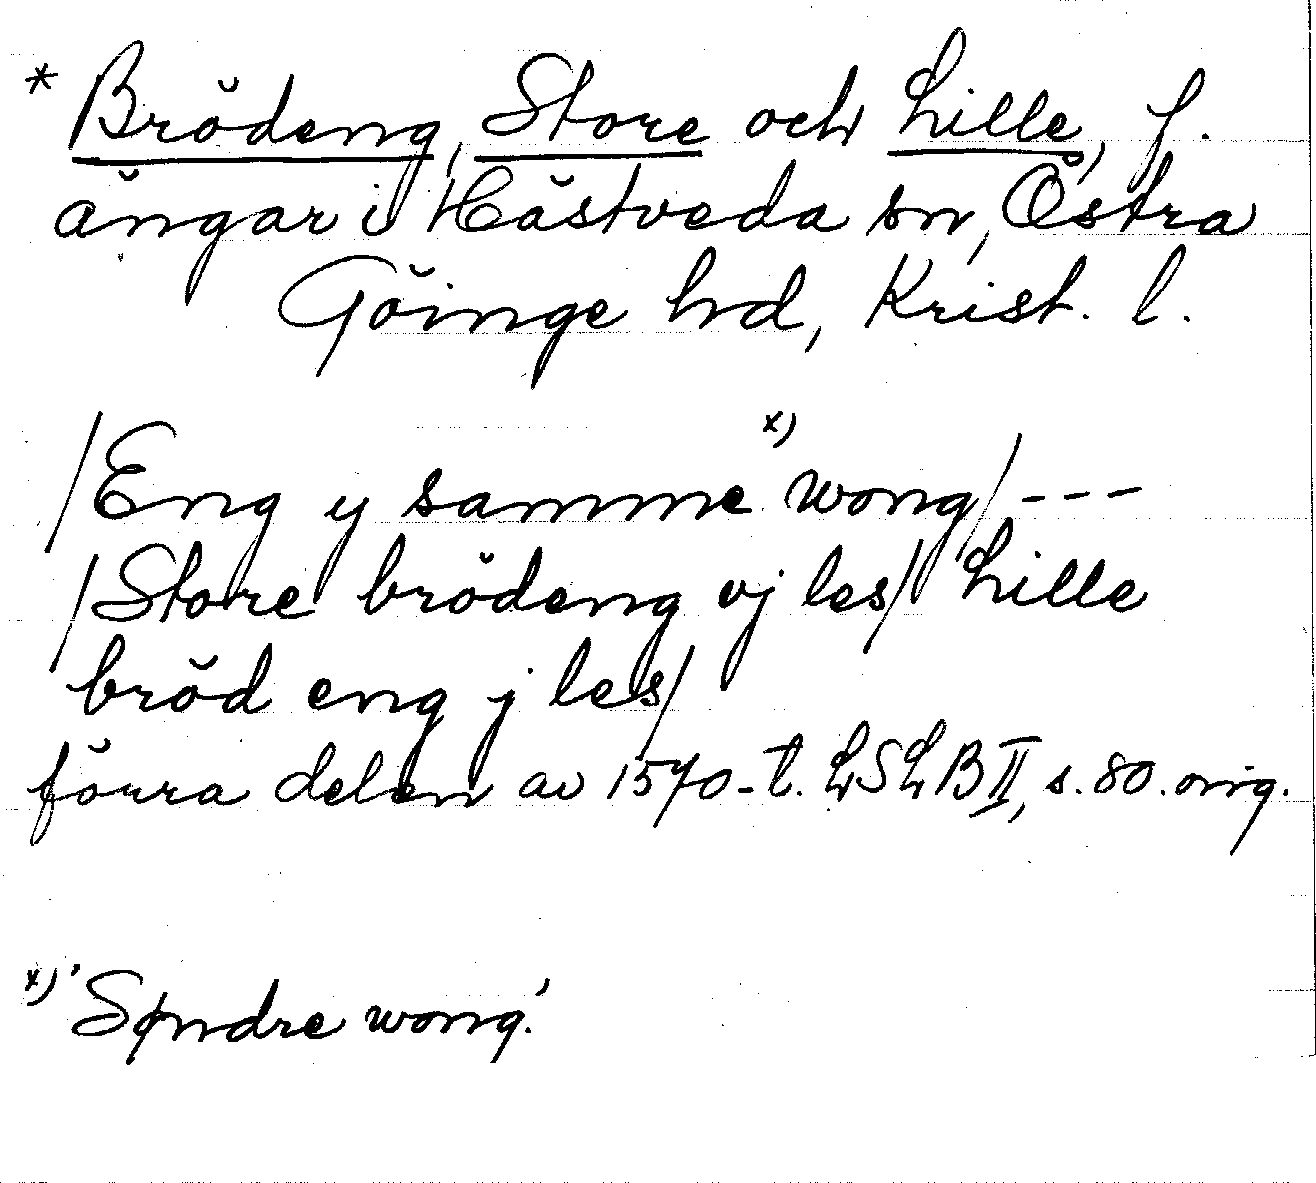 * Brödeng, Store och Lille, f.
ängar i Hästveda sn, Östra
Göinge hd, Krist. l.
/Eng y samme x) wong/ ---
/Store brödeng vj les/ Lille
bröd eng j les/
förra delen av 1570-t. LSLB II, s. 80. orig.
x) 'Søndre wong.'